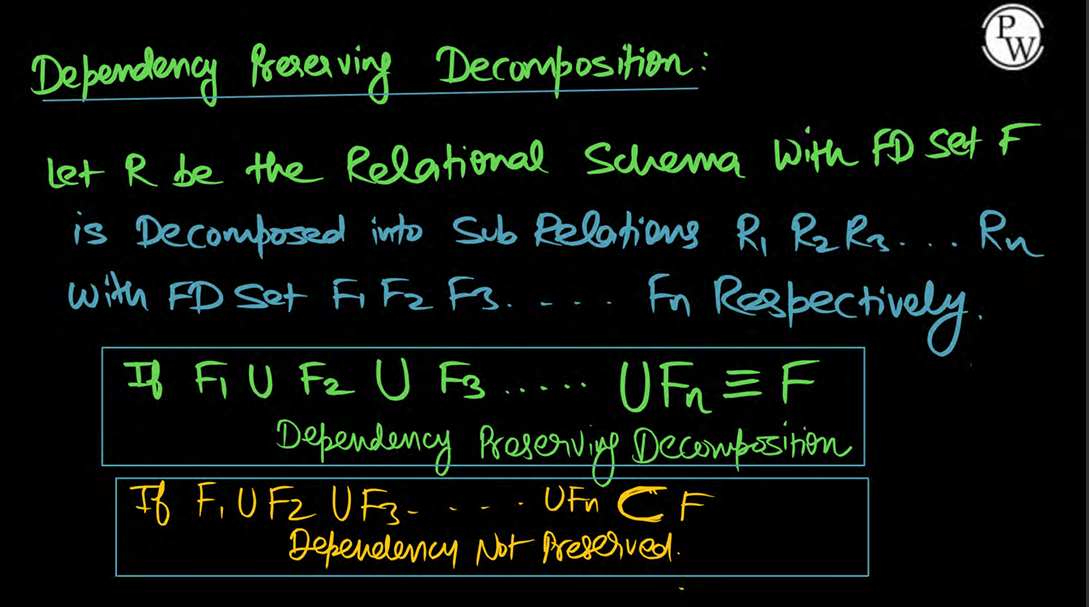 PW
Dependency Preserving Decomposition:
Let R be the Relational Schema with FD set F
is Decomposed into Sub Relations R₁ R₂ R₃.... Rn
with FD set F₁ F₂ F₃..... Fn Respectively.
If F₁ U F₂ U F₃...... UFn ≡ F
Dependency Preserving Decomposition
If F₁ U F₂ U F₃..... UFn ⊂ F
Dependency Not Preserved.